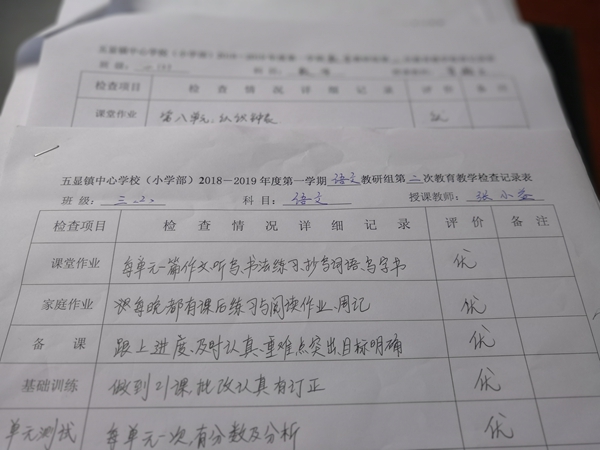 五显镇中心学校（小学部）2018－2019
检查项目 检 查 情 况 详 细 记 录 评 价 备 注
课堂作业 第八单元：认识钟表 优
五显镇中心学校（小学部）2018－2019年度第一学期 语文 教研组第 二 次教育教学检查记录表
班 级： 科 目： 语文 授课教师： 张小
检查项目 检 查 情 况 详 细 记 录 评 价 备 注
课堂作业 每单元一篇作文、听写、书法练习、抄写词语、写字书 优
家庭作业 每晚都有课后练习与阅读作业、周记 优
备 课 跟上进度、及时认真、重难点突出、目标明确 优
基础训练 做到21课，批改认真有订正 优
单元测试 每单元一次，有分数及分析 优